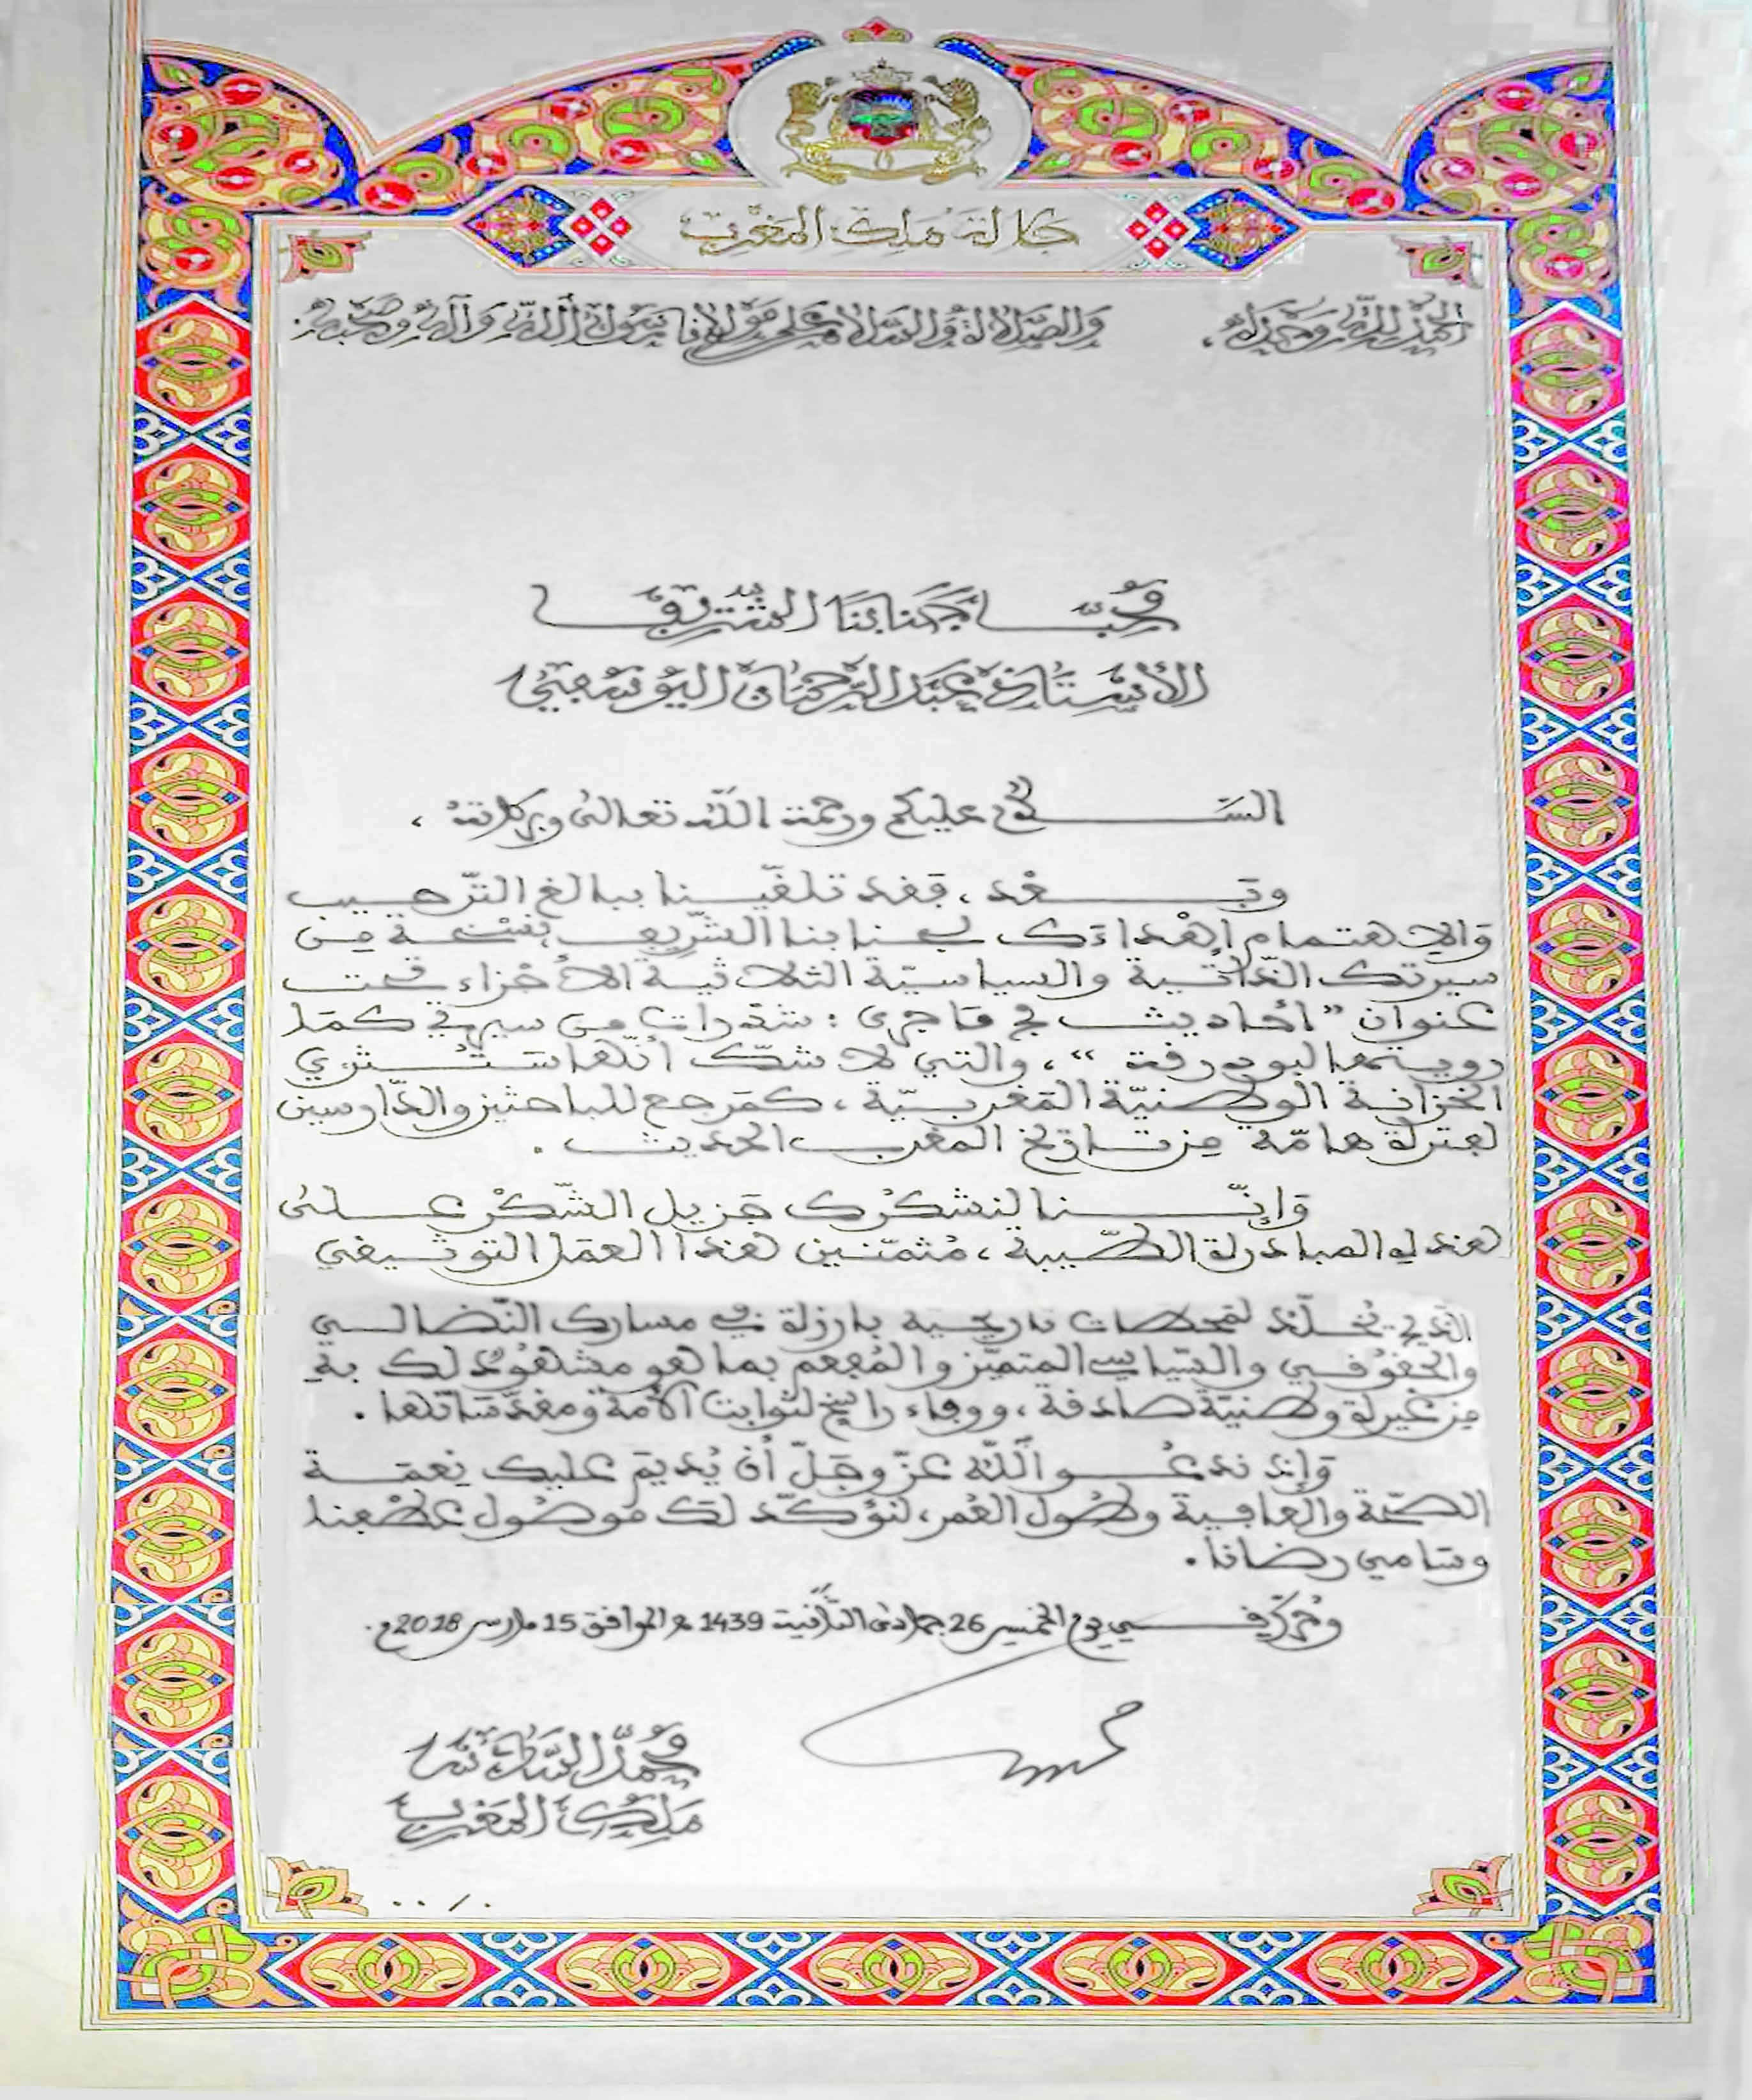 جلالة ملك المغرب
الحمد لله وحده، والصلاة والسلام على مولانا رسول الله وآله وصحبه.
محب جنابنا الشريف
الأستاذ عبد الرحمان اليوسفي
السلام عليكم ورحمة الله تعالى وبركاته،
وبعد، فقد تلقينا ببالغ الترحيب
والاهتمام إهداءك لجنابنا الشريف نسخة من
سيرتك الذاتية والسياسية الثلاثية الأجزاء تحت
عنوان "أحاديث في ما جرى: شذرات من سيرتي كما
رويتها لبودرقة"، والتي لا شك أنها ستثري
الخزانة الوطنية المغربية، كمرجع للباحثين والدارسين
لفترة هامة من تاريخ المغرب الحديث.
وإننا لنشكرك جزيل الشكر على
هذه المبادرة الطيبة، مثمنين هذا العمل التوثيقي
الذي يخلد لمحطات تاريخية بارزة في مسارك النضالي
والحقوقي والسياسي المتميز والمفعم بما هو مشهود لك به
من غيرة وطنية صادقة، ووفاء راسخ لثوابت الأمة ومقدساتها.
وإذ ندعو الله عز وجل أن يديم عليك نعمة
الصحة والعافية وطول العمر، لنؤكد لك موصول عطفنا
وسامي رضانا.
وحرر في يوم الخميس 26 جمادى الثانية 1439 هـ الموافق 15 مارس 2018م.
محمد السادس
ملك المغرب